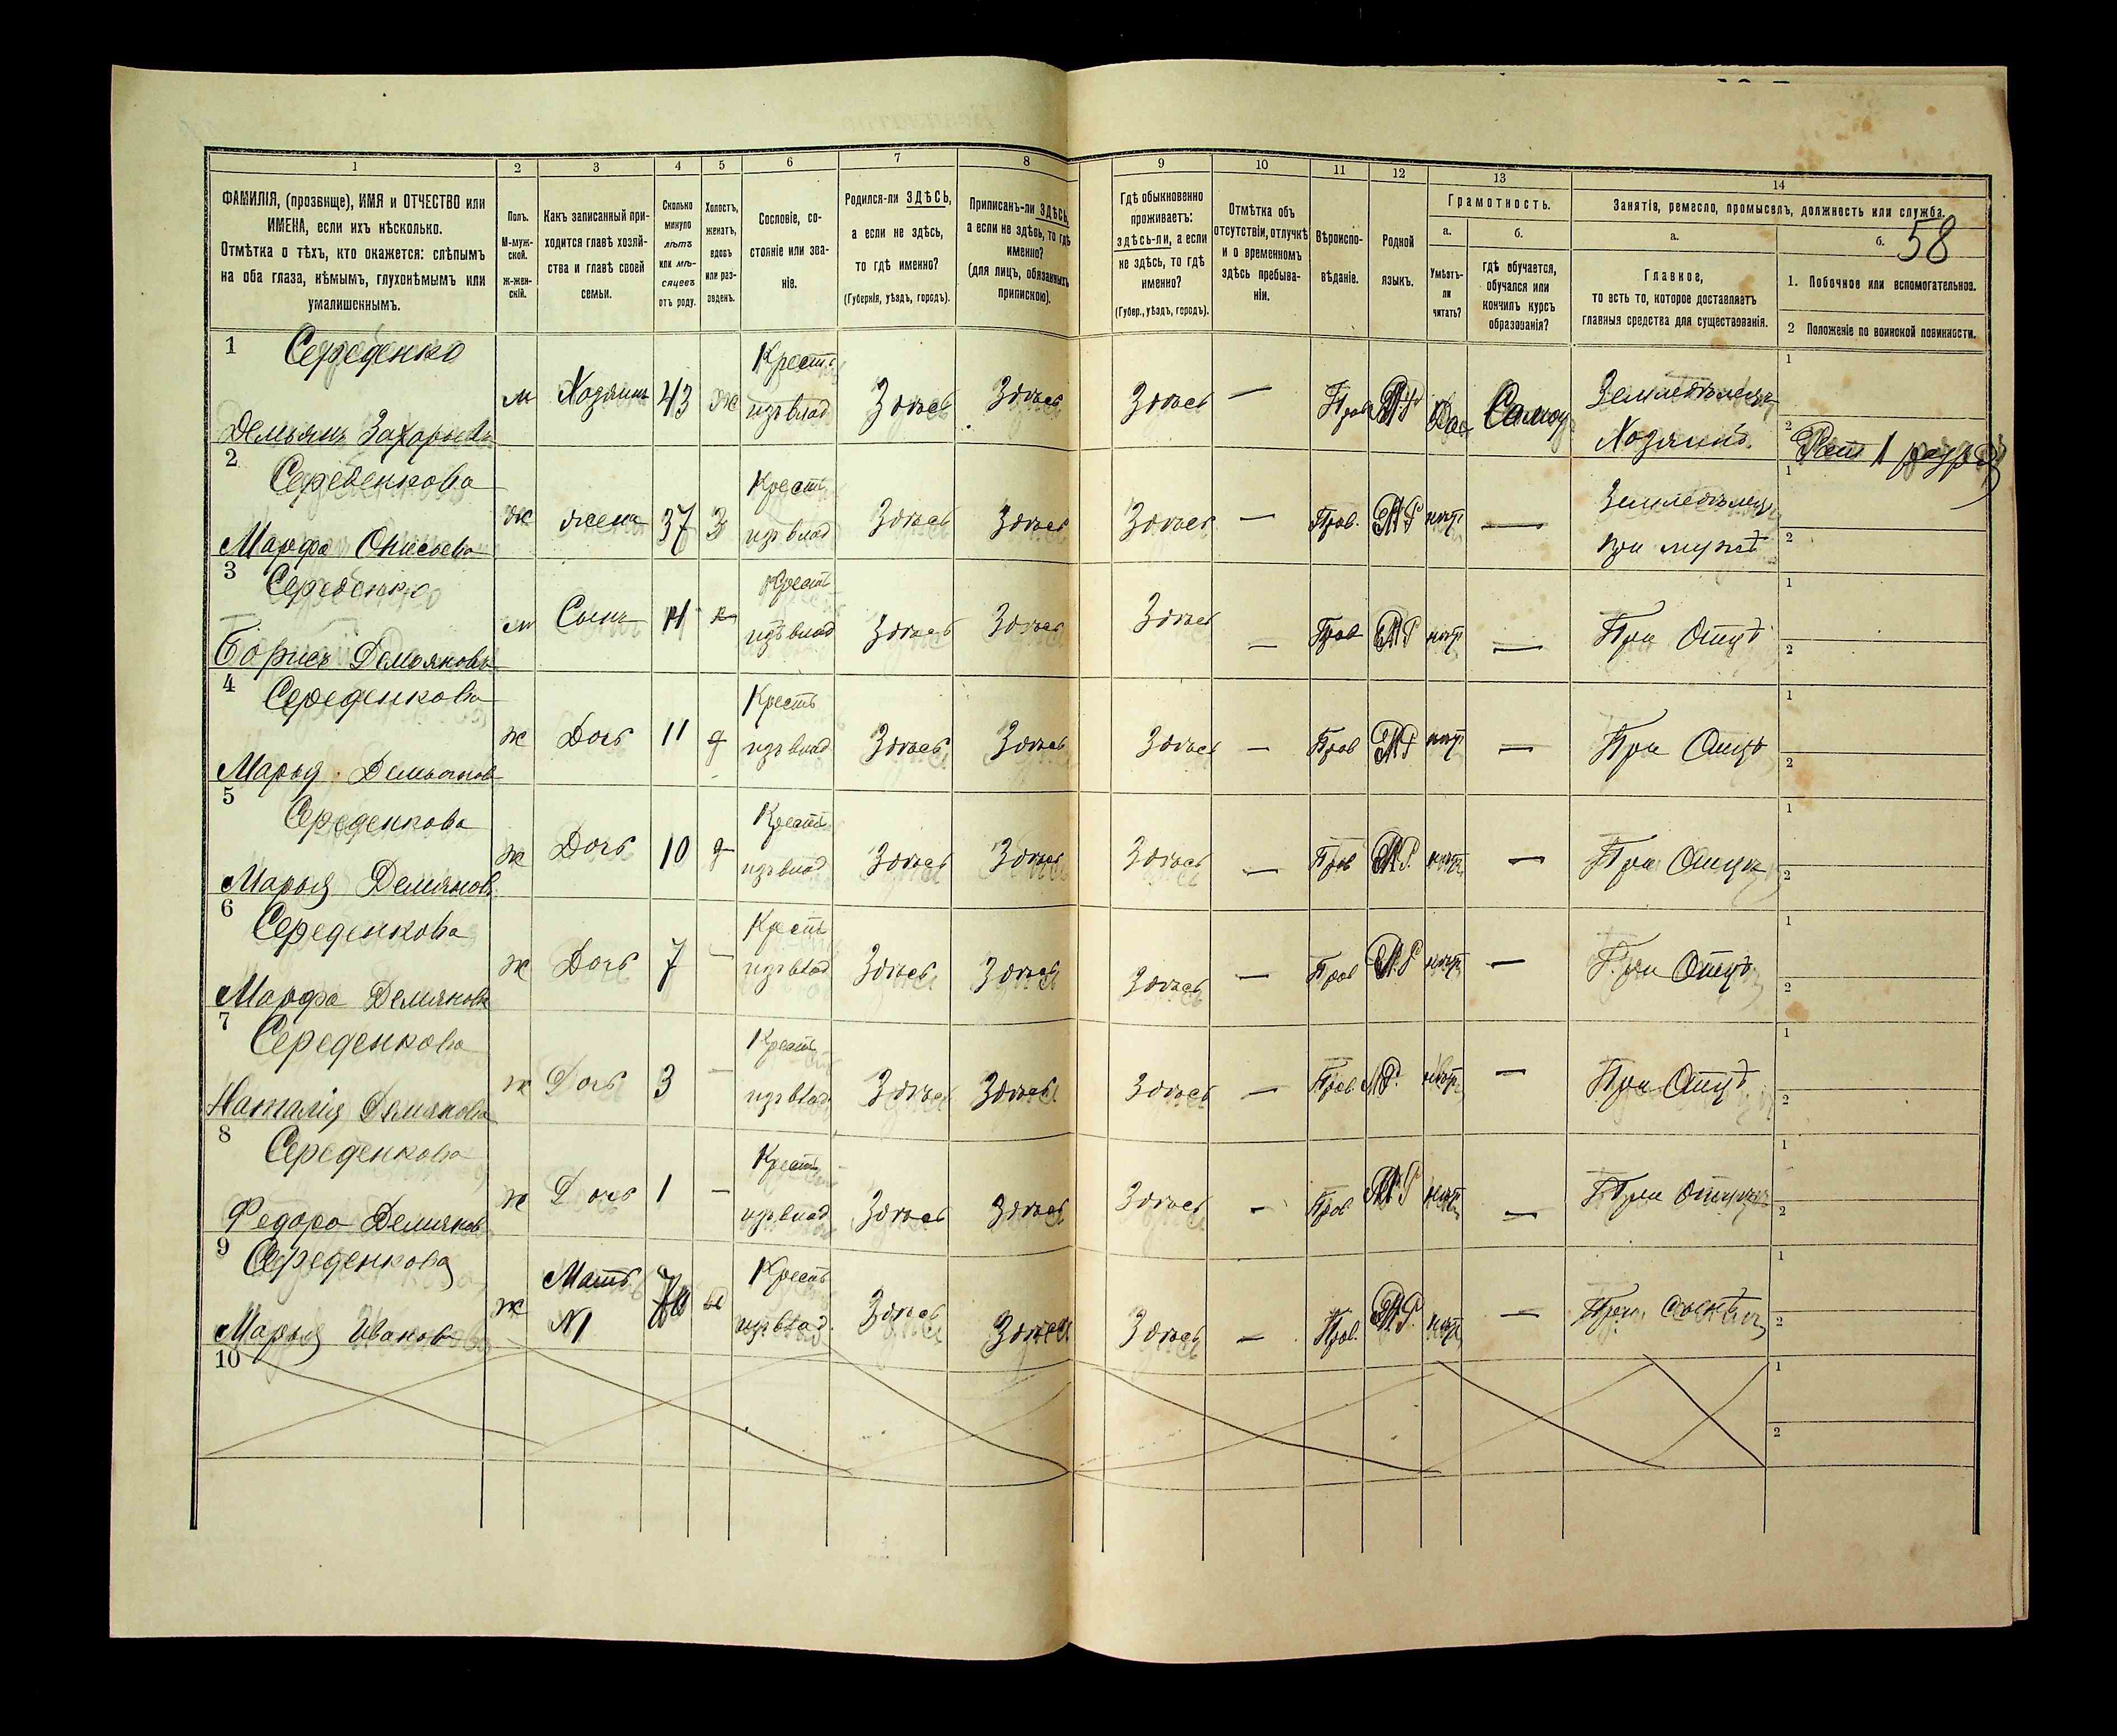 1 2 3 4 5 6 7 8 9 10 11 12 13 14
ФАМИЛІЯ, (прозвище), ИМЯ и ОТЧЕСТВО или
ИМЕНА, если ихъ нѣсколько.
Отмѣтка о тѣхъ, кто окажется: слѣпымъ
на оба глаза, нѣмымъ, глухонѣмымъ или
умалишеннымъ.
Полъ.
М-муж-
ской.
Ж-жен-
скій.
Какъ записанный при-
ходится главѣ хозяй-
ства и главѣ своей
семьи.
Сколько
минуло
лѣтъ
или мѣ-
сяцевъ
отъ роду.
Холостъ,
женатъ,
вдовъ
или раз-
веденъ.
Сословіе, со-
стояніе или зва-
ніе.
Родился-ли ЗДѢСЬ,
а если не здѣсь,
то гдѣ именно?
(Губернія, уѣздъ, городъ).
Приписанъ-ли ЗДѢСЬ,
а если не здѣсь, то гдѣ
именно?
(для лицъ, обязанныхъ
припискою).
Гдѣ обыкновенно
проживаетъ:
здѣсь-ли, а если
не здѣсь, то гдѣ
именно?
(Губер., уѣздъ, городъ).
Отмѣтка объ
отсутствіи, отлучкѣ
и о временномъ
здѣсь пребыва-
ніи.
Вѣроиспо-
вѣданіе.
Родной
языкъ.
Грамотность.
а.
Умѣетъ-
ли
читать?
б.
гдѣ обучается,
обучался или
кончилъ курсъ
образованія?
Занятія, ремесло, промыселъ, должность или служба.
58
а.
Главное,
то есть то, которое доставляетъ
главныя средства для существованія.
б.
1. Побочное или вспомогательное.
2 Положеніе по воинской повинности.
1 Середенко
Демьянъ Захарьевъ
м Хозяинъ 43 ж
Крест
изъ влад
Здѣсь Здѣсь Здѣсь — Прав МР Да Самоу
Земледѣлецъ
Хозяинъ.
1
2 Рат 1 разр
2 Середенкова
Марфа
ж жена 37 З
Крест
изъ влад
Здѣсь Здѣсь Здѣсь — Прав. МР нѣт —
Земледѣлец
при мужѣ
1
2
3 Середенко
Борисъ Демьяновъ
м Сынъ
Крест
изъ влад
Здѣсь Здѣсь Здѣсь — Прав МР нѣт —
При Отцѣ
1
2
4 Середенкова
Марья Демьянов
ж Дочь 11
Крест
изъ влад
Здѣсь Здѣсь Здѣсь — Прав МР нѣт —
При Отцѣ
1
2
5 Середенкова
Марья Демянов
ж Дочь 10
Крест
изъ влад
Здѣсь Здѣсь Здѣсь — Прав МР. нѣт —
При Отцѣ
1
2
6 Середенкова
Марфа Демянова
ж Дочь 7 —
Крест
изъ влад
Здѣсь Здѣсь Здѣсь — Прав МР нѣт —
При Отцѣ
1
2
7 Середенкова
Наталія Демянова
ж Дочь 3 —
Крест
изъ влад
Здѣсь Здѣсь Здѣсь — Прав МР. нѣт —
При Отцѣ
1
2
8 Середенкова
Федора Демянов
ж Дочь 1 —
Крест
изъ влад
Здѣсь Здѣсь Здѣсь — Прав МР нѣт —
При Отцѣ
1
2
9 Середенкова
Марья Иванов
ж Мать
N1
70 в
Крест
изъ влад.
Здѣсь Здѣсь Здѣсь — Прав. МР. нѣт —
При сынѣ
1
2
10
1
2